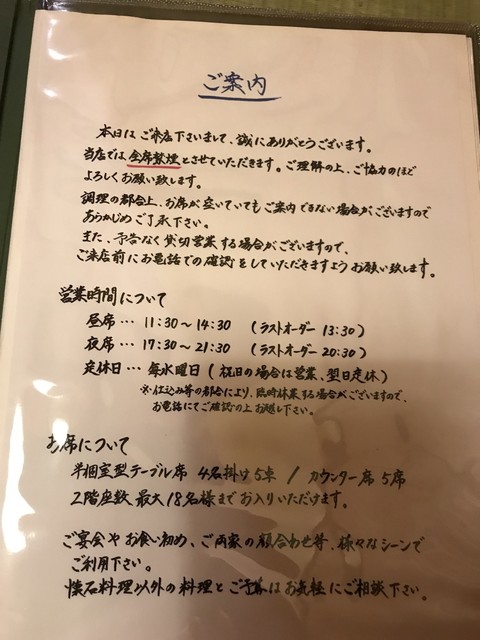 ご案内
本日はご来店下さいまして、誠にありがとうございます。
当店では全席禁煙とさせていただきます。ご理解の上、ご協力のほど
よろしくお願い致します。
調理の都合上、お席が空いていてもご案内できない場合がございますので
あらかじめご了承下さい。
また、予告なく貸切営業する場合がございますので、
ご来店前にお電話での確認をしていただきますようお願い致します。
営業時間について
昼席… 11:30~14:30 (ラストオーダー 13:30)
夜席… 17:30~21:30 (ラストオーダー 20:30)
定休日… 毎水曜日(祝日の場合は営業、翌日定休)
※仕込み等の都合により、臨時休業する場合がございますので、
お電話にてご確認の上お越し下さい。
お席について
半個室型テーブル席 4名掛け5卓 / カウンター席 5席
2階座敷 最大18名様までお入りいただけます。
ご宴会やお食い初め、ご両家の顔合わせ等、様々なシーンで
ご利用下さい。
懐石料理以外の料理とご予算はお気軽にご相談下さい。